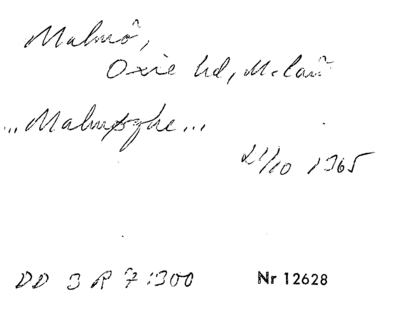 Malmö,
Oxie hd, M-län
...Malmøghe...
21/10 1365
DD 3 R 7:300 Nr 12628